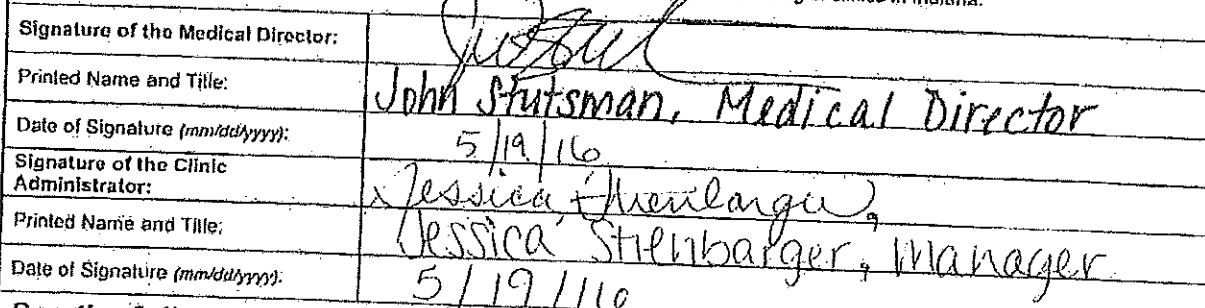 in Indiana.
Signature of the Medical Director:
Printed Name and Title: John Stutsman, Medical Director
Date of Signature (mm/dd/yyyy): 5/19/16
Signature of the Clinic
Administrator: Jessica
Printed Name and Title: Jessica Stienbarger, Manager
Date of Signature (mm/dd/yyyy): 5/19/16